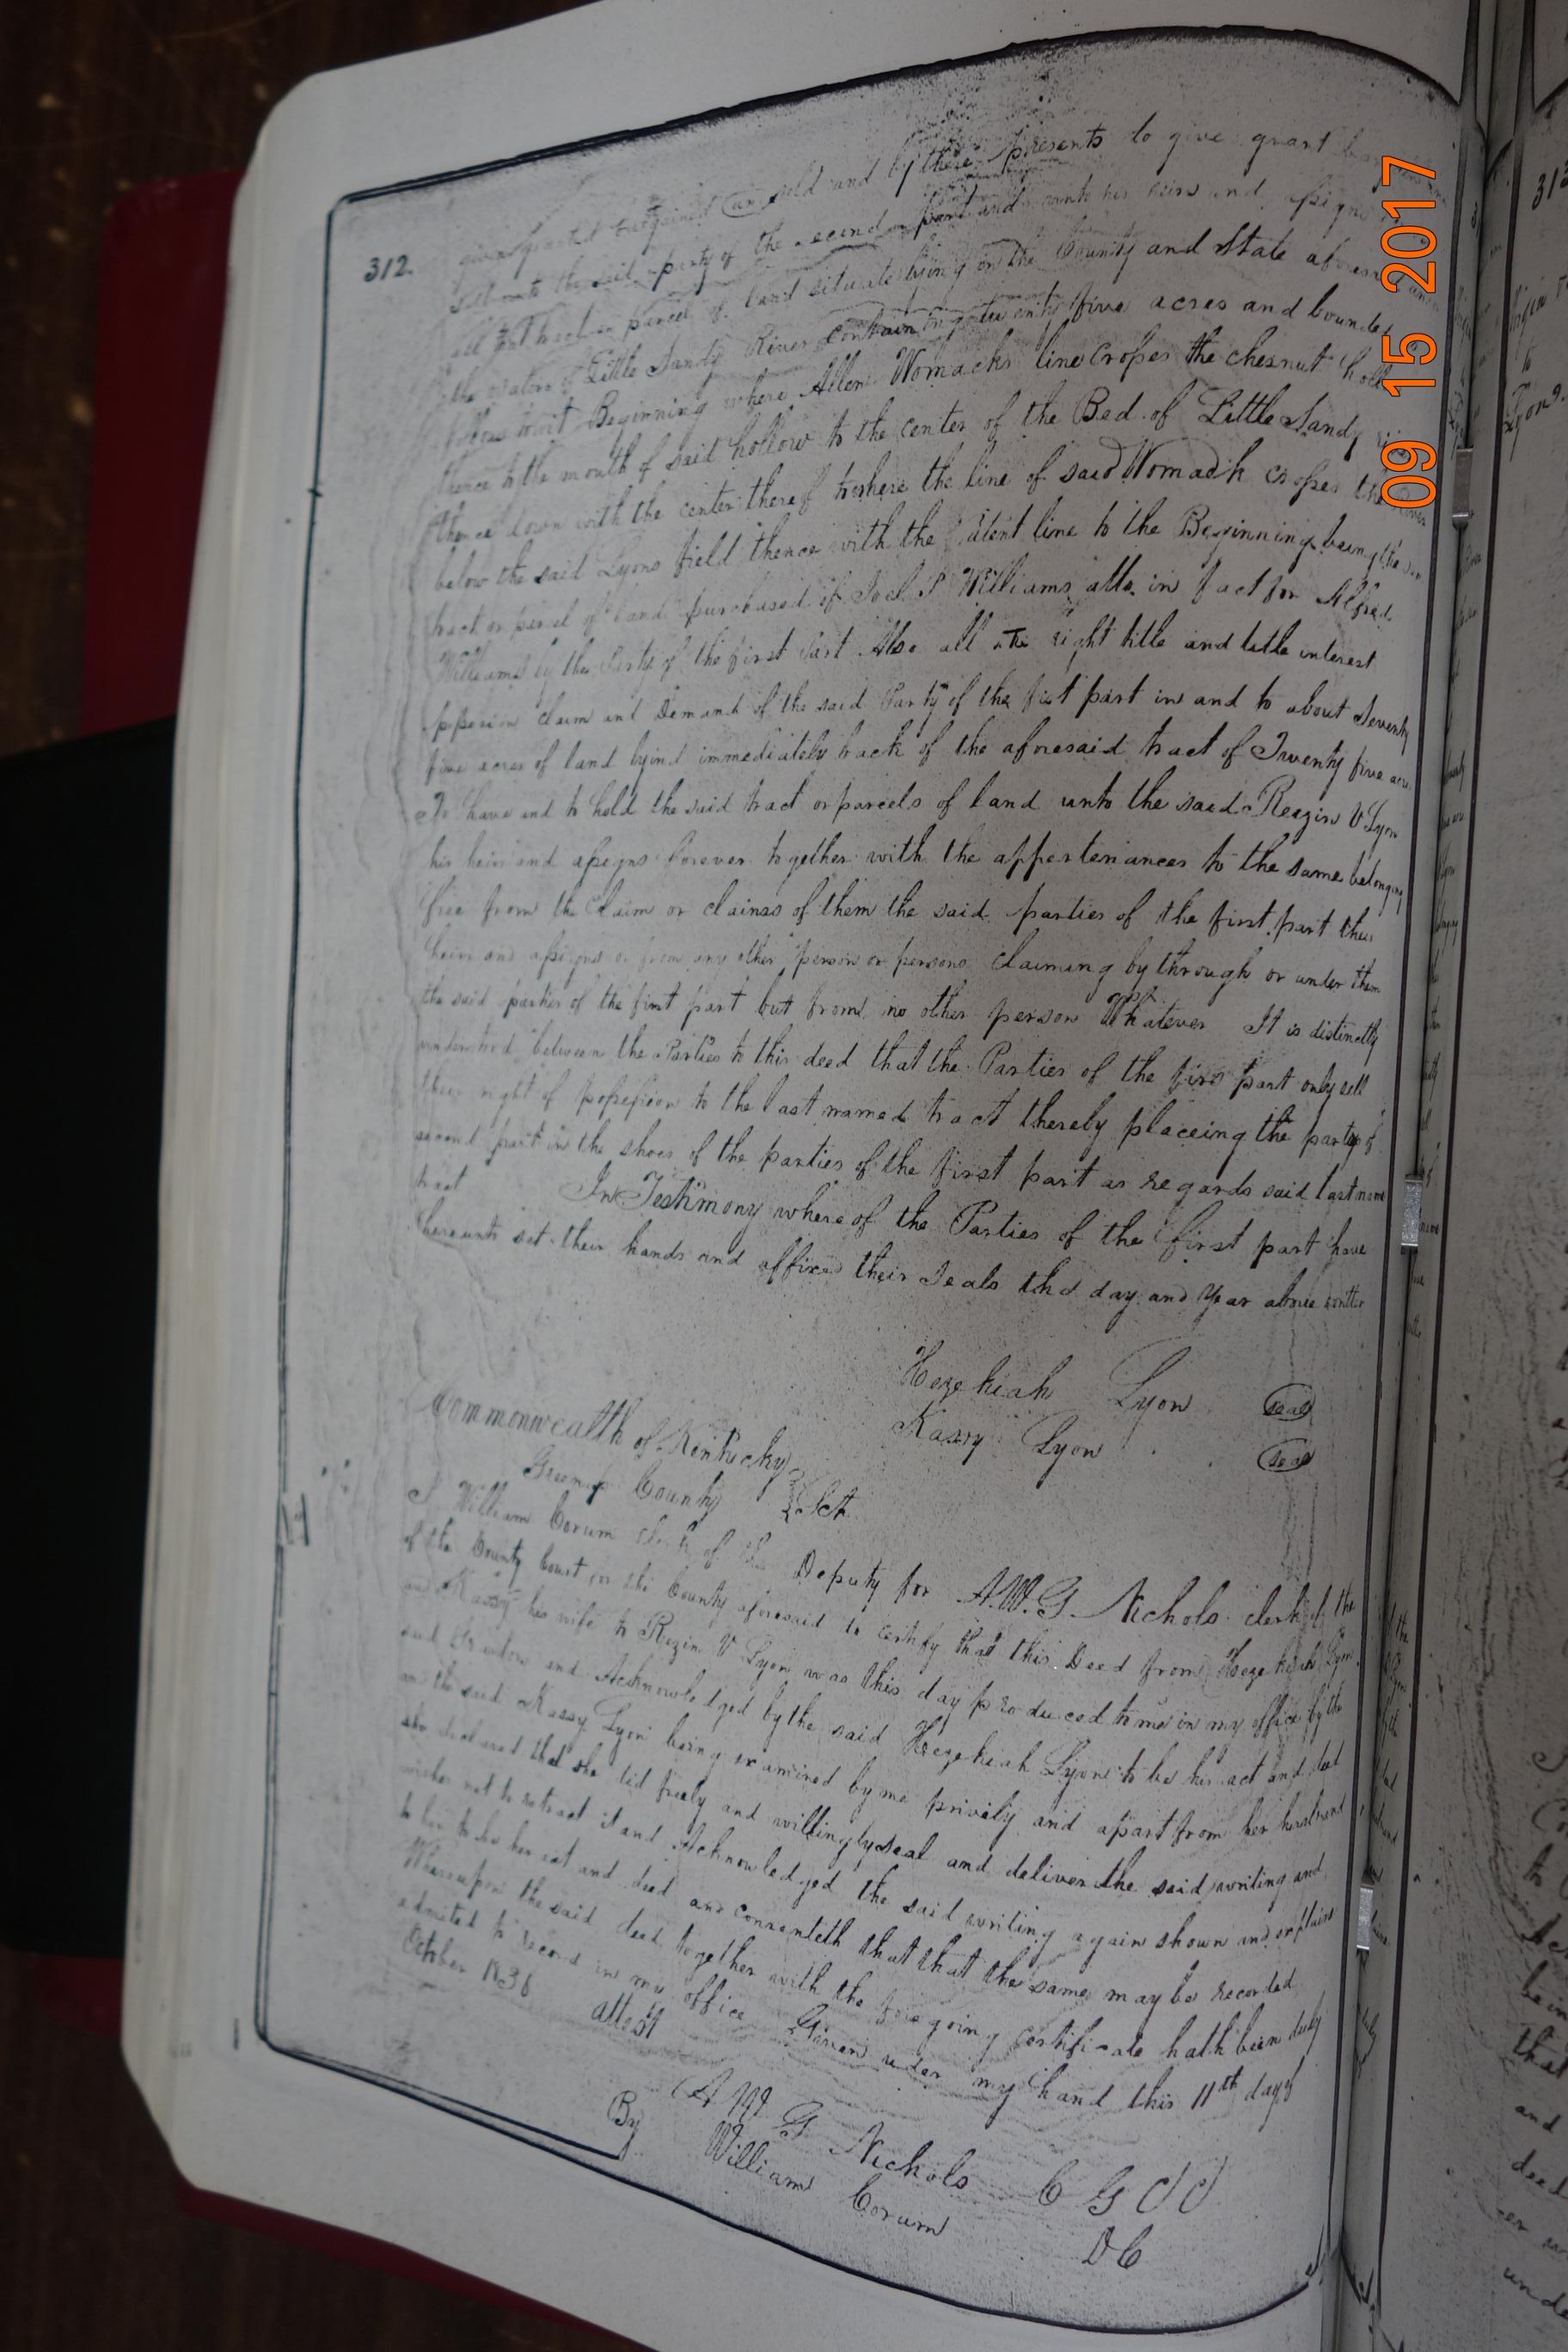 312.
given granted bargained and sold and by these presents to give grant
sell unto the said party of the second part and unto his heirs and assigns
all that tract or parcel of land situate lying on the County and State aforesaid
the waters of Little Sandy River containing twenty five acres and bounded
follows towit Beginning where Allen Womacks line crosses the chesnut holl
thence to the mouth of said hollow to the center of the Bed of Little Sandy
thence down with the center thereof to where the line of said Womack crosses the
below the said Lyons field thence with the Patent line to the Beginning being the
tract or parcel of land purchased of Joel S Williams atto. in fact for Alfred
Williams by the Party of the first Part Also all the right title and title interest
possesion claim and Demand of the said Party of the fist part in and to about Seventy
five acres of land lyind immediately back of the aforesaid tract of Twenty five acres
To have and to hold the said tract or parcels of land unto the said Reazin V Lyon
his heirs and assigns forever together with the appertenances to the same belonging
free from the Claim or claims of them the said parties of the first part their
heirs and assigns or from any other person or persons claiming by through or under them
the said parties of the first part but from no other person Whatever It is distinctly
understood between the Parties to this deed that the Parties of the first part only sell
their right of possession to the last named tract thereby placeing the party of
second part in the shoes of the parties of the first part as regards said last named
tract In Testimony whereof the Parties of the first part have
hereunto set their hands and affixed their Seals the day and Year above written
Hezekiah Lyon Seal
Kassy Lyon Seal
Commonwealth of Kentucky
Greenup County Sct
I William Corum clerk of the Deputy for A.W.G. Nichols clerk of the
of the County Court for the County aforesaid do certify that this Deed from Hezekiah Lyon
and Kassy his wife to Rezin V Lyon was this day produced to me in my office by the
said Grantors and Acknowledged by the said Hezekiah Lyon to be his act and deed
and the said Kassy Lyon being examined by me privily and apart from her husband
she declared that she did freely and willingly seal and deliver the said writing and
wishes not to retract it and Acknowledged the said writing again shown and explained
to her to be her act and deed and consenteth that that the same may be recorded
Whereupon the said deed together with the foregoing certificate hath been duly
admited to record in my office Given under my hand this 11th day of
October 1836
attest
A W G Nichols C G C C
By William Corum D C
09 15 2017